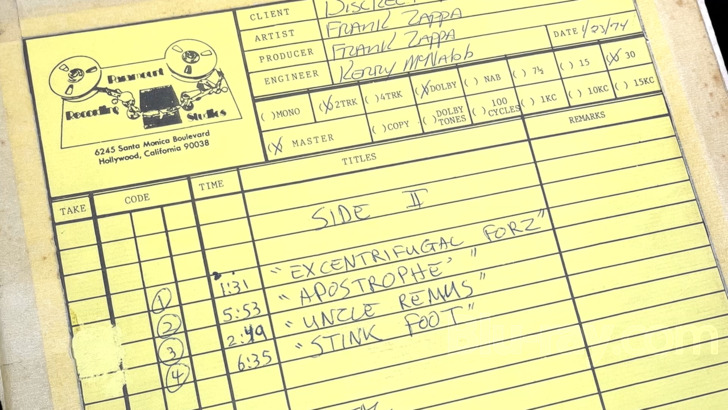 CLIENT
ARTIST FRANK ZAPPA
PRODUCER FRANK ZAPPA DATE 1/23/74
ENGINEER KERRY McNABB
( )MONO (X)2TRK ( )4TRK (X)DOLBY ( )NAB ( )7½ ( )15 (X)30
(X) MASTER ( )COPY ( )DOLBY TONES ( )100 CYCLES ( )1KC ( )10KC ( )15KC
Paramount
Recording Studios
6245 Santa Monica Boulevard
Hollywood, California 90038
TAKE CODE TIME TITLES REMARKS
SIDE II
① 1:31 "EXCENTRIFUGAL FORZ"
② 5:53 "APOSTROPHE'"
③ 2:49 "UNCLE REMUS"
④ 6:35 "STINK FOOT"